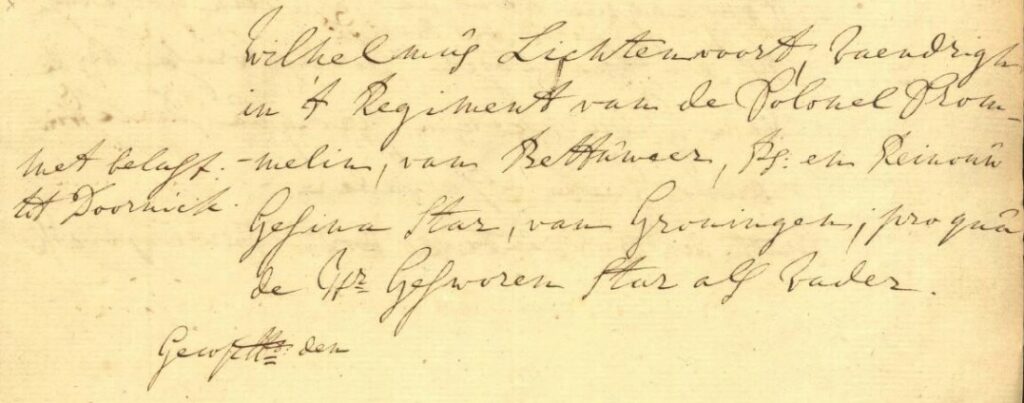 Wilhelmus Lichtenvoort, Vaendrigh
in 't Regiment van de Colonel Prom-
melin, van Bettuweer, Bg. en Reinouw
Gesina Star, van Groningen, pro qua
de Hr Gesworen Star als Vader.
met belast.
tot Doornick.
den